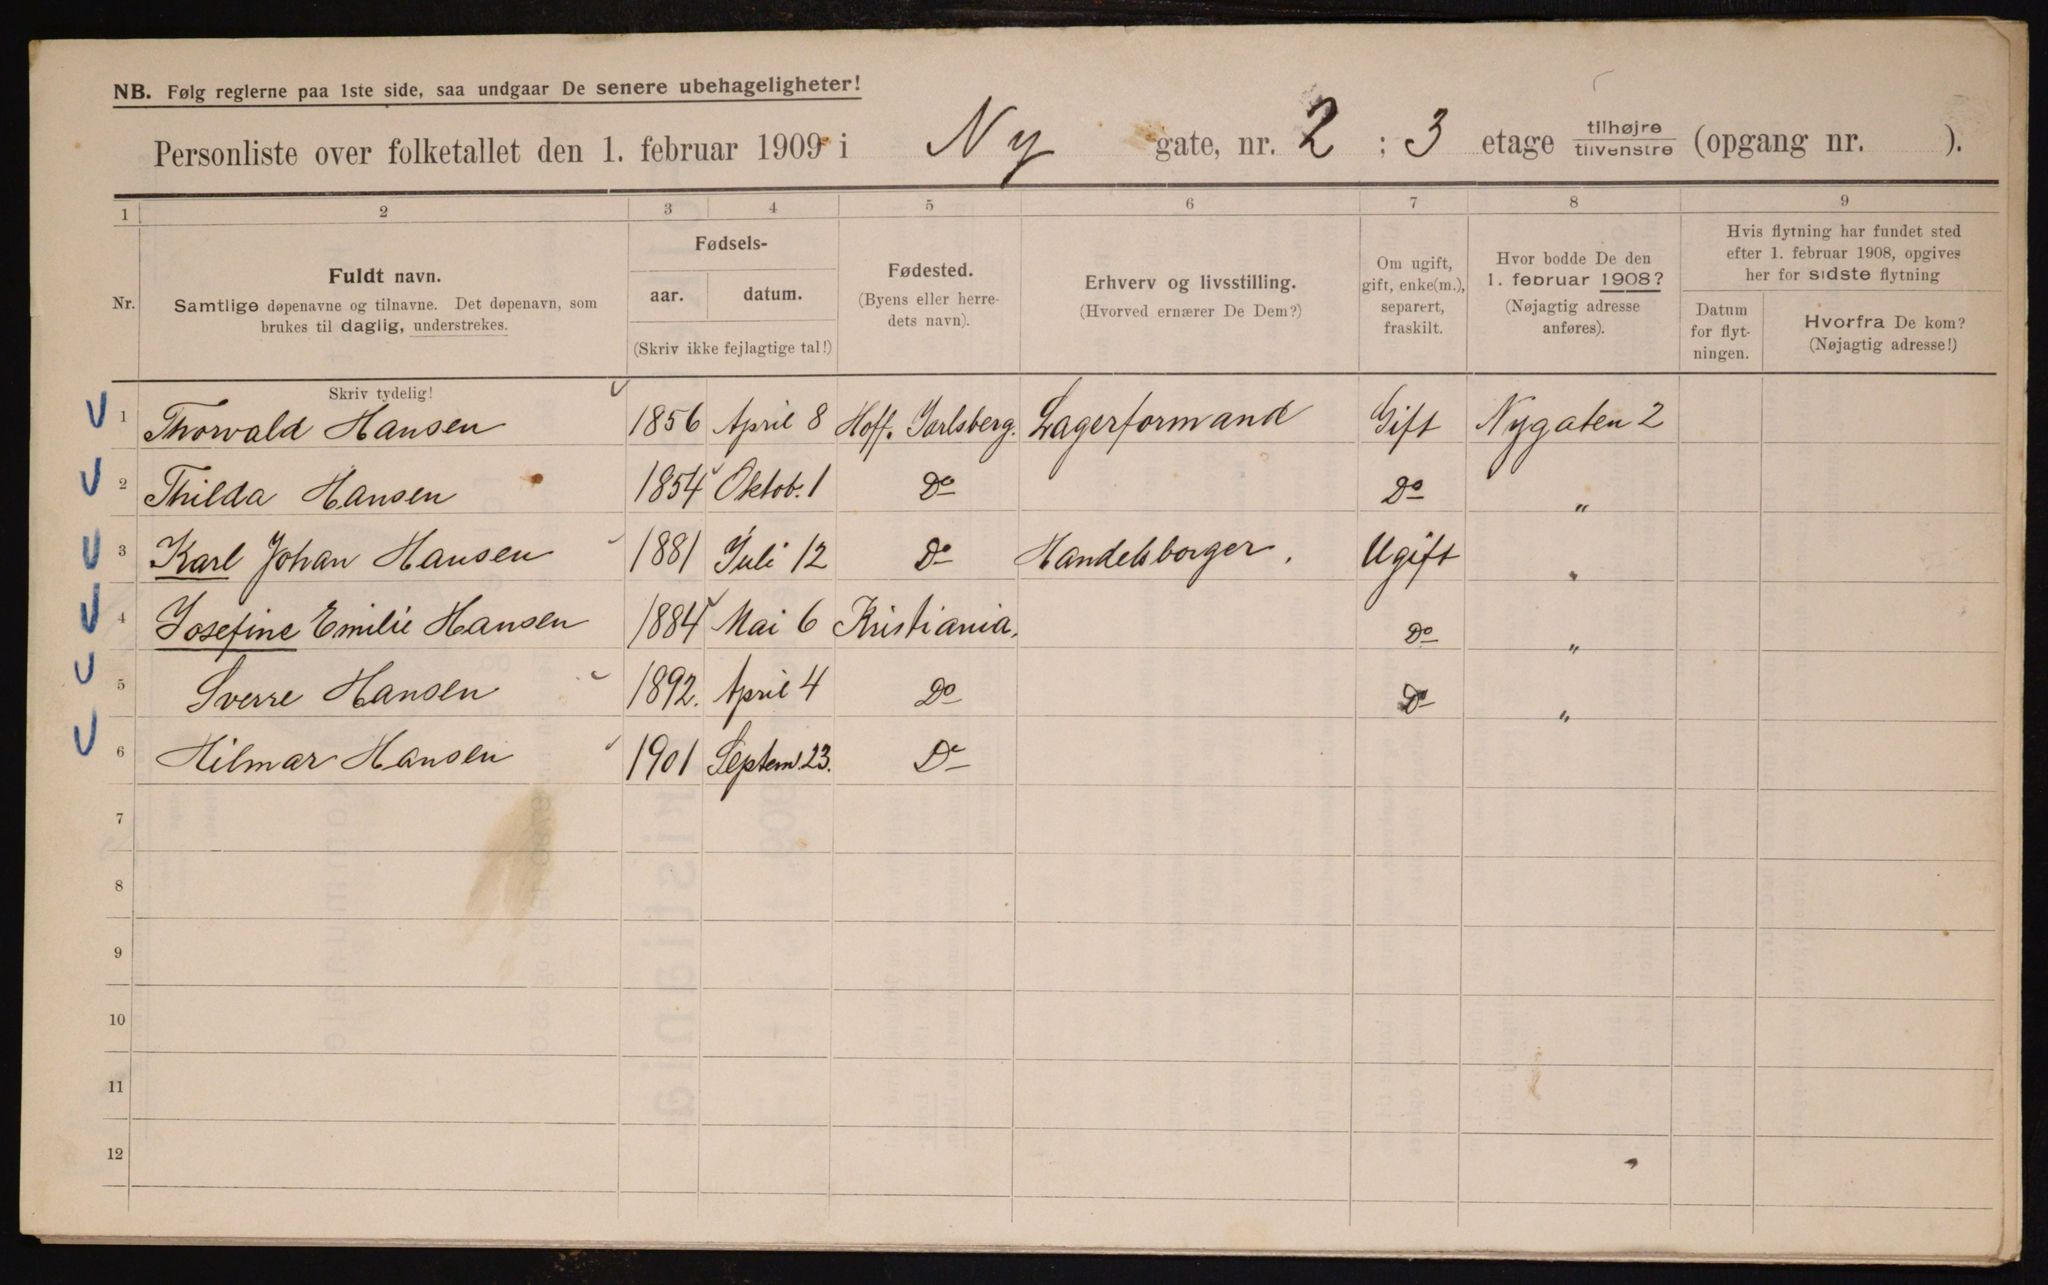 NB. Følg reglerne paa 1ste side, saa undgaar De senere ubehageligheter!
Personliste over folketallet den 1. februar 1909 i Ny gate, nr. 2 ; 3 etage tilhøjre tilvenstre (opgang nr. ).
1 2 3 4 5 6 7 8 9
Nr.
Fuldt navn.
Samtlige døpenavne og tilnavne. Det døpenavn, som
brukes til daglig, understrekes.
Fødsels-
aar. datum.
(Skriv ikke fejlagtige tal!)
Fødested.
(Byens eller herre-
dets navn).
Erhverv og livsstilling.
(Hvorved ernærer De Dem?)
Om ugift,
gift, enke(m.),
separert,
fraskilt.
Hvor bodde De den
1. februar 1908?
(Nøjagtig adresse
anføres).
Hvis flytning har fundet sted
efter 1. februar 1908, opgives
her for sidste flytning
Datum
for flyt-
ningen.
Hvorfra De kom?
(Nøjagtig adresse!)
Skriv tydelig!
1 Thorvald Hansen 1856 April 8 Hoff. Jarlsberg. Lagerformand Gift Nygaten 2
2 Thilda Hansen 1854 Oktob. 1 Do Do "
3 Karl Johan Hansen 1881 Juli 12 Do Handelsborger. Ugift "
4 Josefine Emilie Hansen 1884 Mai 6 Kristiania. Do "
5 Sverre Hansen 1892. April 4 Do Do "
6 Hilmar Hansen 1901 Septem. 23. Do
7
8
9
10
11
12